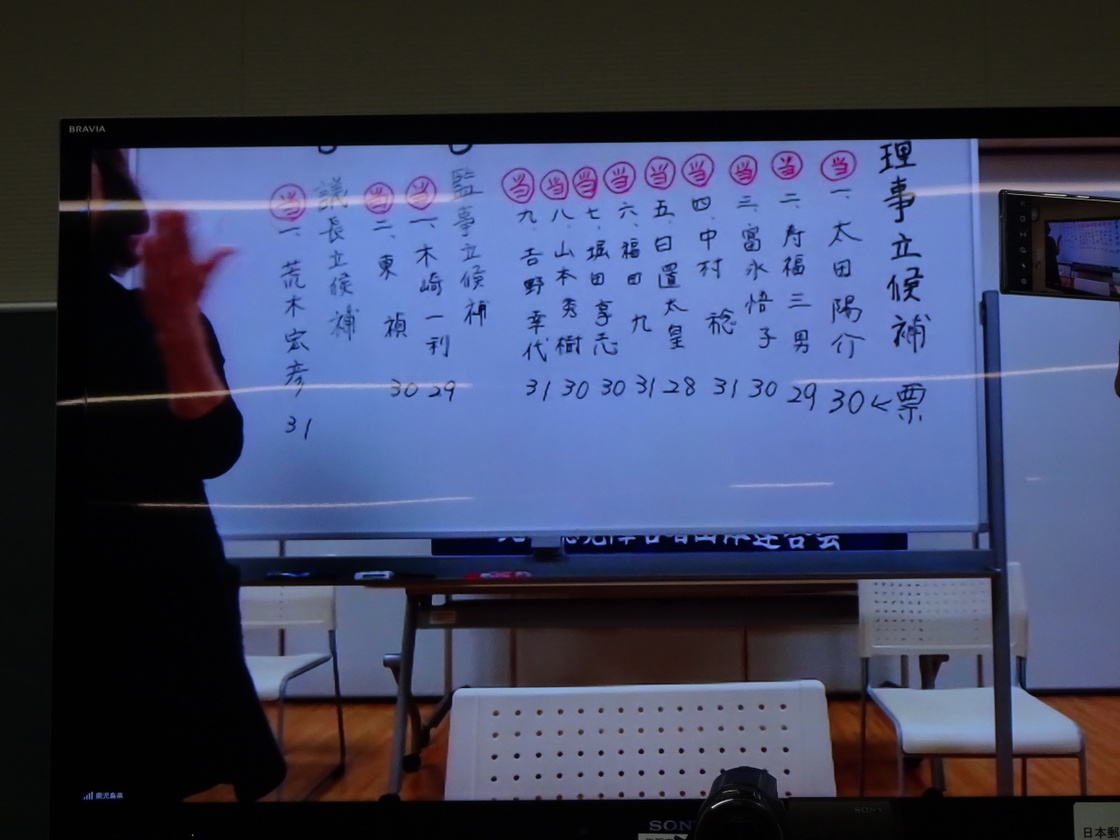 BRAVIA
理事立候補 票
当 一、太田陽介 30←
当 二、寿福三男 29
当 三、富永悟子 30
当 四、中村稔 31
当 五、日置太皇 28
当 六、福田九 31
当 七、堀田享志 30
当 八、山本秀樹 30
当 九、吉野幸代 31
監事立候補
当 一、木崎一利 29
当 二、東禎 30
議長立候補
当 一、荒木宏彦 31
鹿児島県
SONY
SONY
日本郵